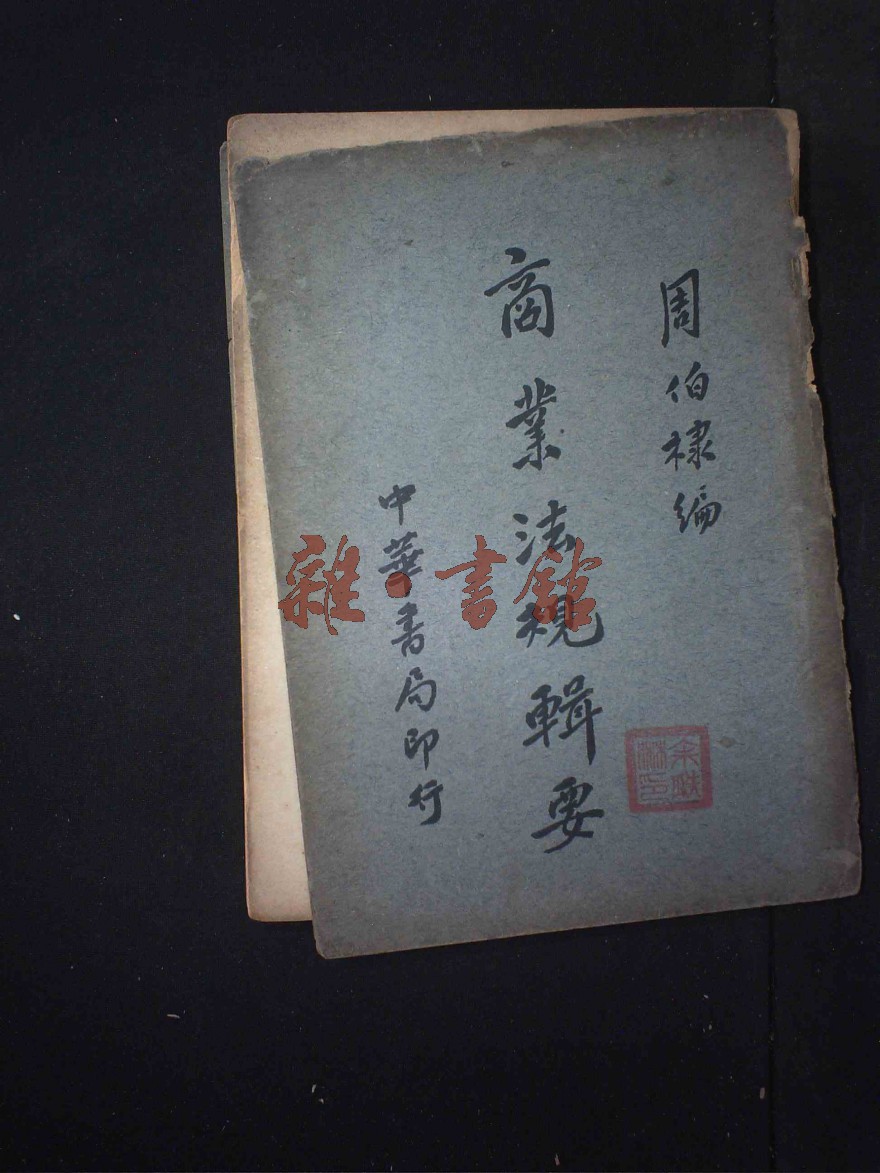 周伯棣編
商業法規輯要
中華書局印行
雜·書館